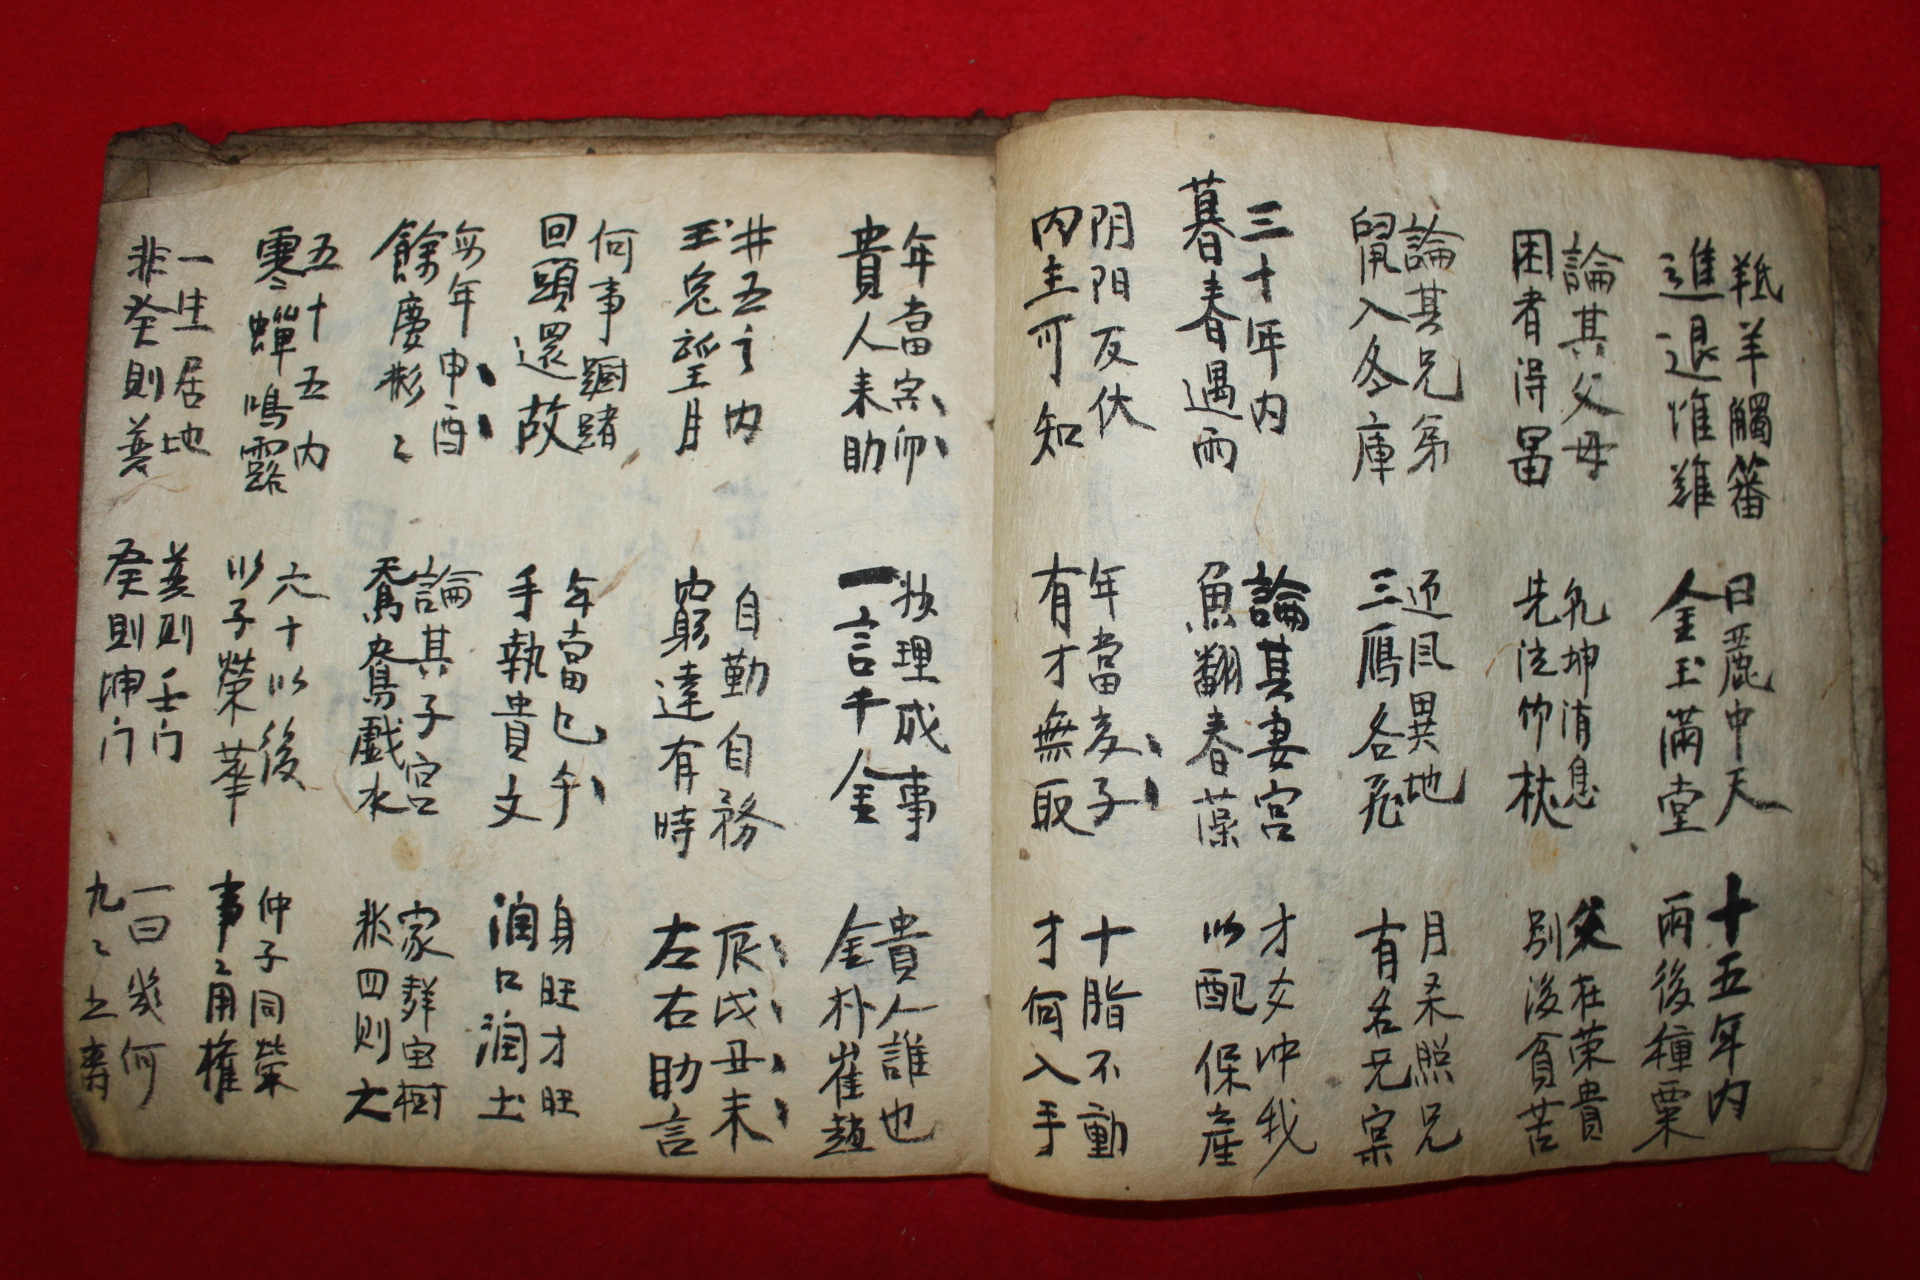 羝羊觸藩
進退惟難
日麗中天
金玉滿堂
十五年內
雨後種粟
論其父母
困者得
乾坤消息
先法竹杖
父在荣貴
別後貧苦
論其兄弟
入冬庫
迎风異地
三鴈各飛
月来照兄
有名兄宗
三十年内
暮春遇雨
論其妻宮
魚翻春藻
才女冲我
以配保產
阴阳反伏
内主可知
年當亥子
有才無取
十脂不動
才何入手
年當寅卯
貴人来助
执理成事
一言千金
貴人誰也
金朴崔趙
廾五之内
玉兔望月
自勤自務
窮達有時
辰戌丑未
左右助言
何事躕躇
回頭還故
年當巳午
手執貴文
身旺才旺
润口润土
每年申酉
餘慶彬々
論其子宮
鴛鴦戲水
家群宝樹
非四則六
五十五内
寒蟬鳴露
六十以後
以子榮華
仲子同榮
事々用權
一生居地
非癸則丑
丑則壬门
癸則坤门
一曰几何
九々之壽